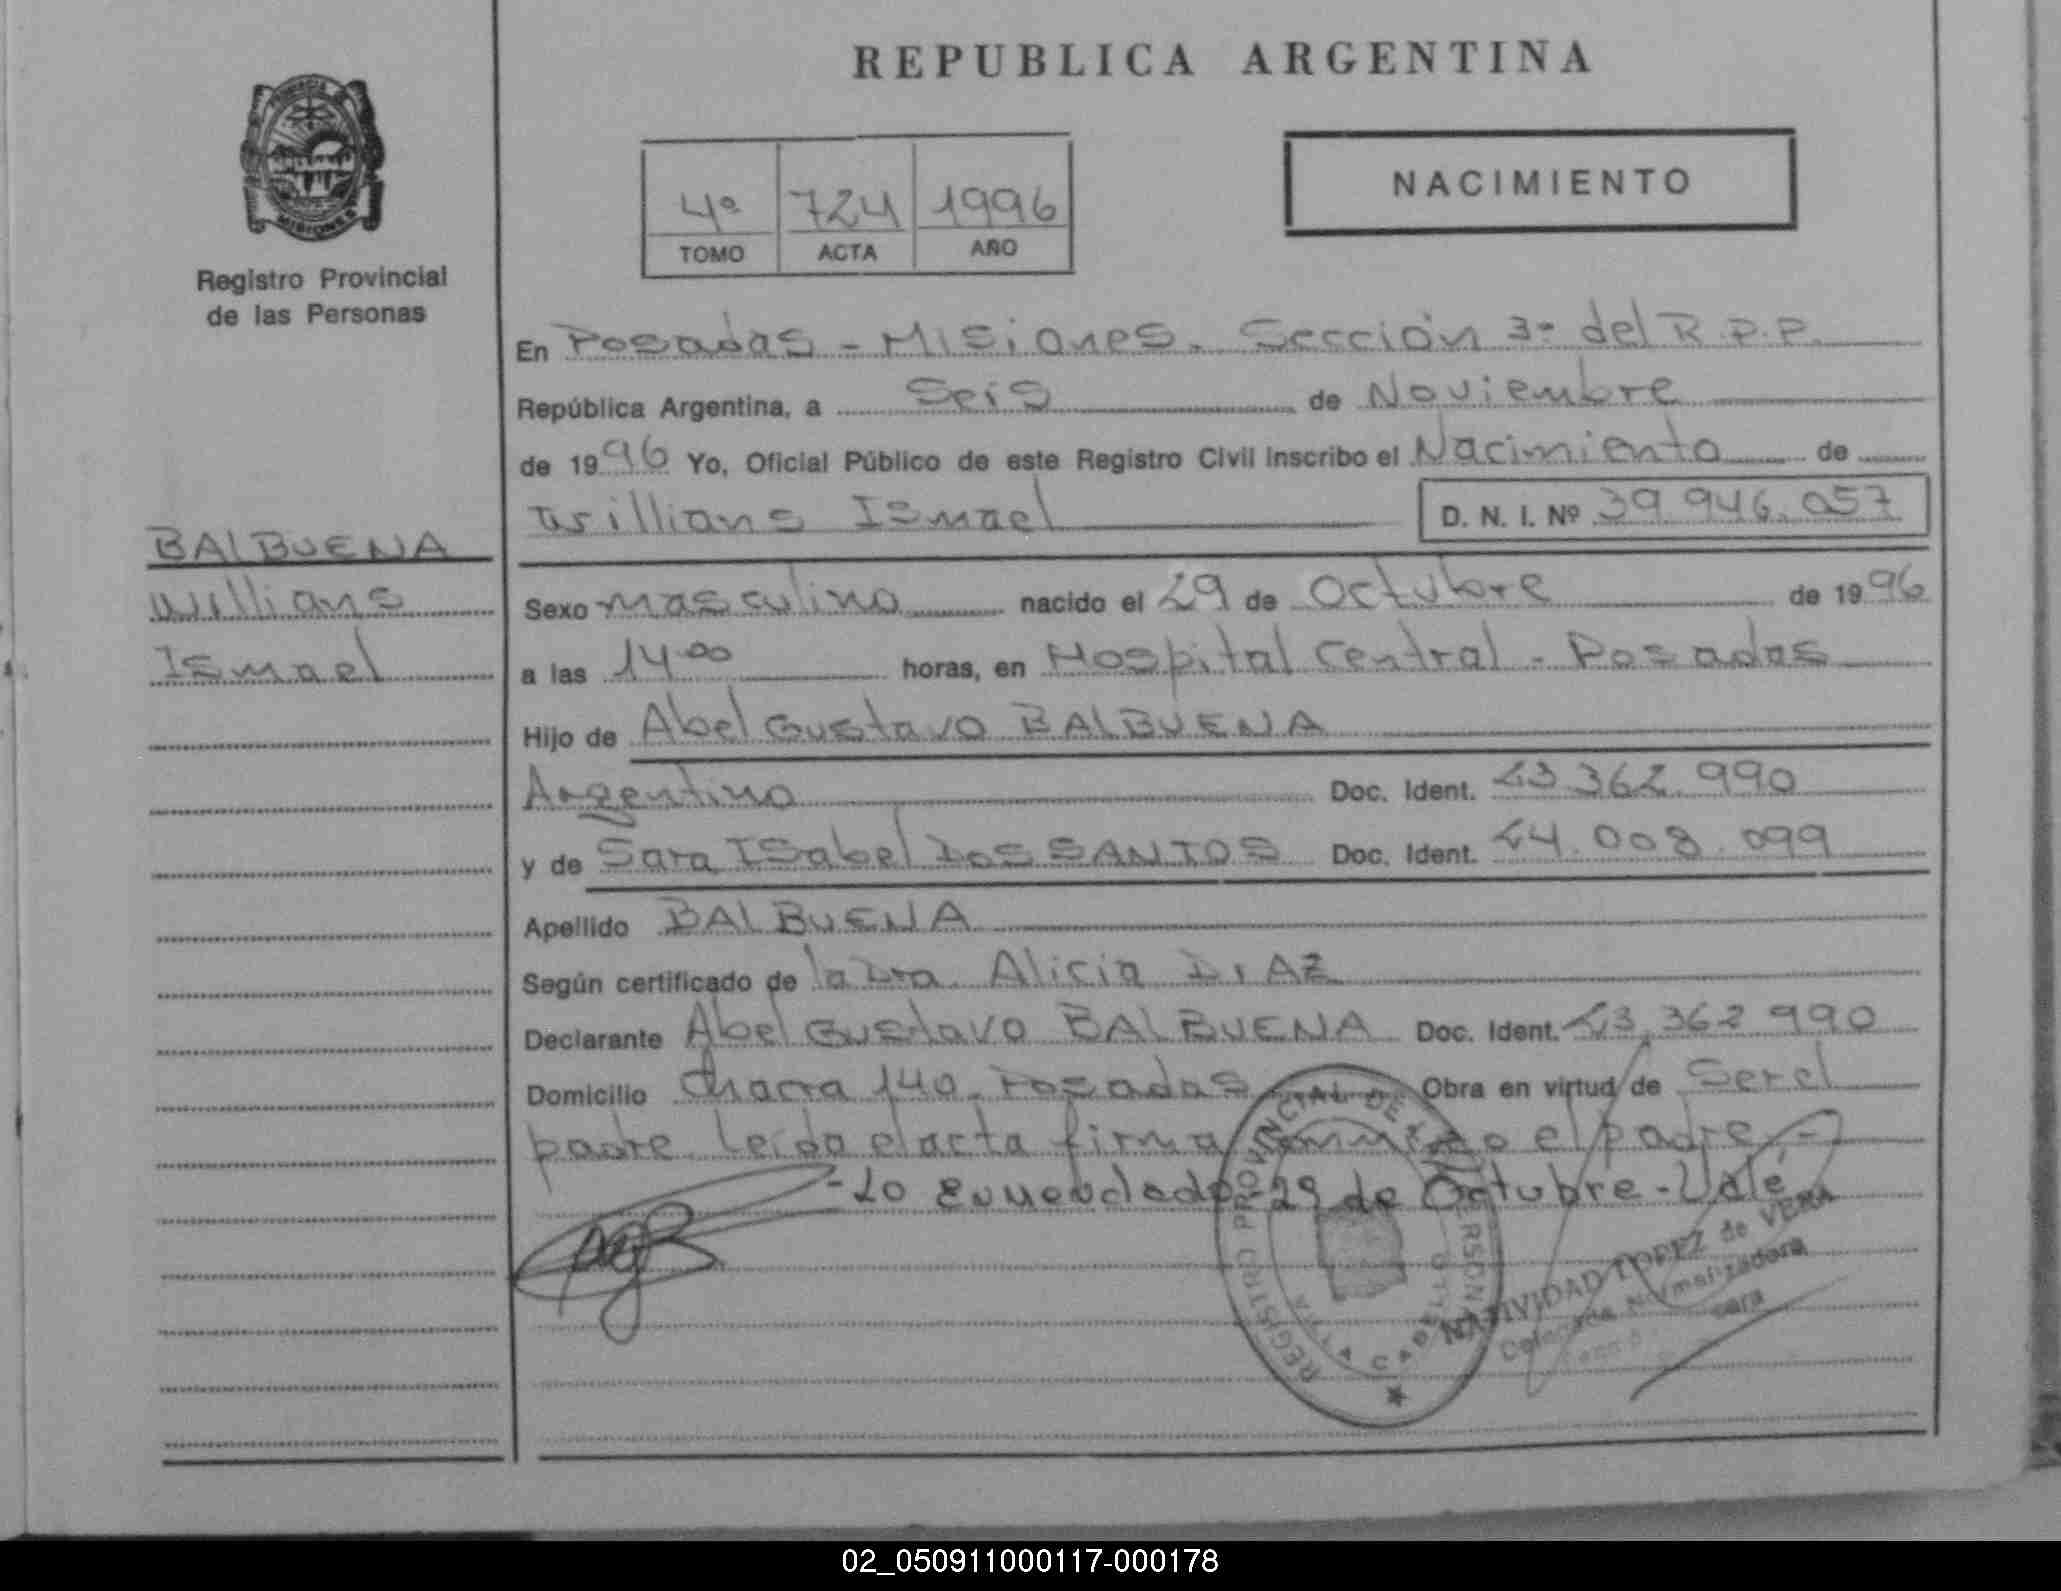 REPUBLICA ARGENTINA
PROVINCIA DE
MISIONES
Registro Provincial
de las Personas
4º 724 1996
TOMO ACTA AÑO
NACIMIENTO
En Posadas - Misiones. Sección 3º del R.P.P.
República Argentina, a Seis de Noviembre
de 1996 Yo, Oficial Público de este Registro Civil inscribo el Nacimiento de
Willians Ismael D. N. I. Nº 39.946.057
BALBUENA
Willians
Ismael
Sexo masculino nacido el 29 de Octubre de 1996
a las 14ºº horas, en Hospital Central - Posadas
Hijo de Abel Gustavo BALBUENA
Argentino Doc. Ident. 23.362.990
y de Sara Isabel DOS SANTOS Doc. Ident. 24.008.099
Apellido BALBUENA
Según certificado de la Dra. Alicia DIAZ
Declarante Abel Gustavo BALBUENA Doc. Ident. 23.362.990
Domicilio Chacra 140. Posadas Obra en virtud de Ser el
padre. Leída el acta firma conmigo el padre.-
-Lo Enmendado-29 de Octubre-Vale
REGISTRO PROVINCIAL DE
NATIVIDAD LOPEZ de VERA
Delegada Normalizadora
02_050911000117-000178